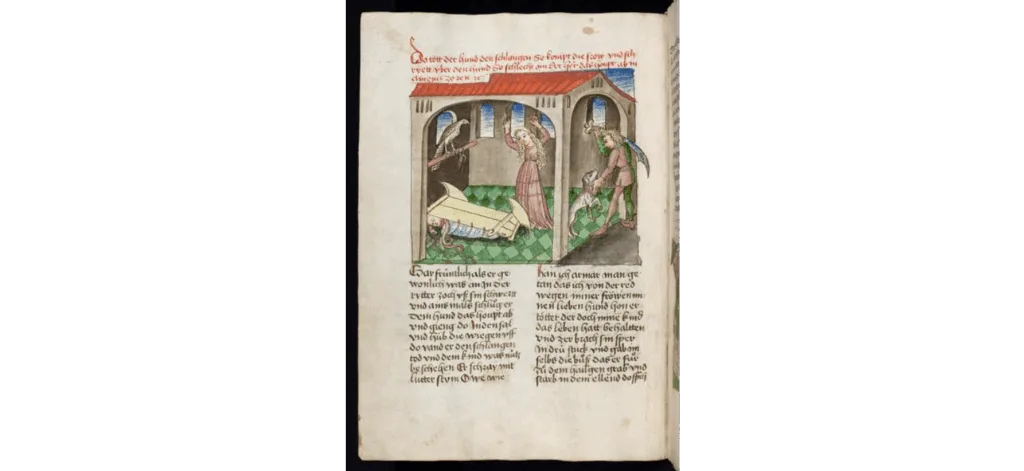 Do tött der hund den schlangen So kompt die frow vnd sch
rytt vber den hund So schlecht om der her das houpt ab
Gar früntlich als er ge
wonlich was an In der
rytter zoch vss sin schwertt
vnd ains mals schlug er
dem hund das houpt ab
vnd gieng do In den sal
vnd hub die wiegen vff
do vand er den schlangen
tod vnd dem kind was nütz
beschehen Er schray mit
lutter stym O we wie
han ich armar man ge
tan das ich von der red
wegen miner fröwen mi
nen lieben hund hon er
tötter der doch mine kind
das leben hatt behaltten
vnd zer brach sin sper
In drü stuck vnd gab im
selbs die buss das er für
zu dem hailgen grab vnd
starb in dem ellend do